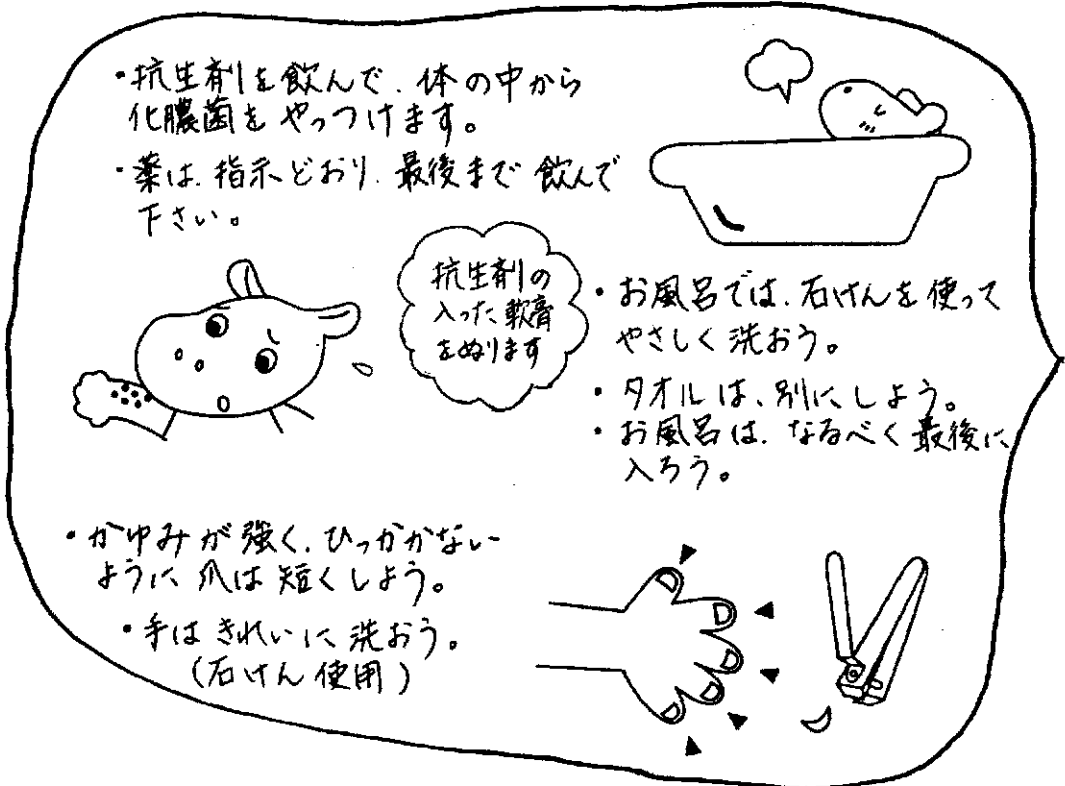 ・抗生剤を飲んで、体の中から
化膿菌をやっつけます。
・薬は、指示どおり、最後まで飲んで
下さい。
抗生剤の
入った軟膏
をぬります
・お風呂では、石けんを使って
やさしく洗おう。
・タオルは、別にしよう。
・お風呂は、なるべく最後に
入ろう。
・かゆみが強く、ひっかかない
ように爪は短くしよう。
・手はきれいに洗おう。
(石けん使用)